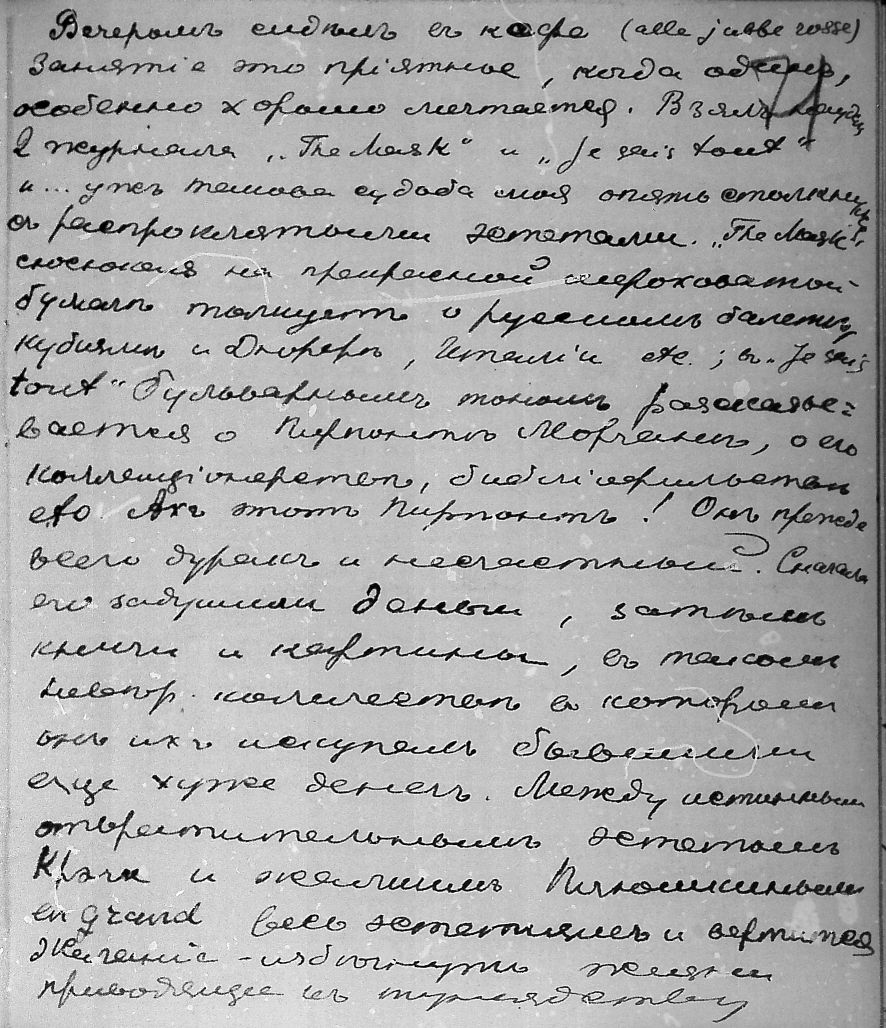 Вечеромъ сидѣлъ въ кафе (alle jubbe rosse)
Занятіе это пріятное, когда одинъ,
особенно хорошо мечтается. Взялъ
2 журнала „The Mask“ и „Je sais tout“
и... ужъ такова судьба моя опять столкну
съ распроклятыми эстетами. „The Mask“
сюсюкая на прекрасной шероховатой
бумагѣ толкуетъ о русскомъ балетѣ,
кубизмѣ и Дюрерѣ, Италіи etc.; въ „Je sais
tout“ бульварнымъ тономъ разсказы=
вается о Пирпонтѣ Морганѣ, о его
коллекціонерствѣ, библіофильствѣ
etc Ахъ этотъ Пирпонтъ! Онъ прежде
всего дуракъ и несчастный. Сначала
его задушили деньги, затѣмъ
книги и картины, въ такомъ
невѣр. количествѣ въ которомъ
онъ ихъ искупалъ бывшими
еще хуже денегъ. Между истиннымъ
отвратительнымъ эстетомъ
Крэгъ и жалкимъ Плюшкинымъ
en grand весь эстетизмъ и вертится
Желаніе - избѣгнуть жизни
приводящее къ тунеядству